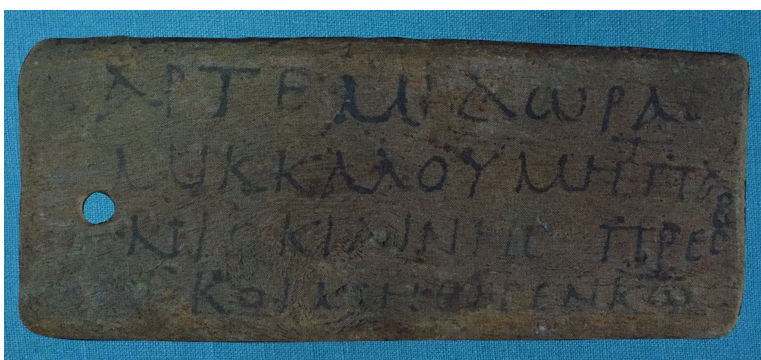 ΑΡΤΕΜΙΔΩΡΑϹ
ΜΙΚΚΑΛΟΥ ΜΗΤ ΠΑ
ΝΙϹΚΙΑΙΝΗϹ ΠΡΕϹΒ
ΕΚΟΙΜΗΘΗ ΕΝ ΚΩ